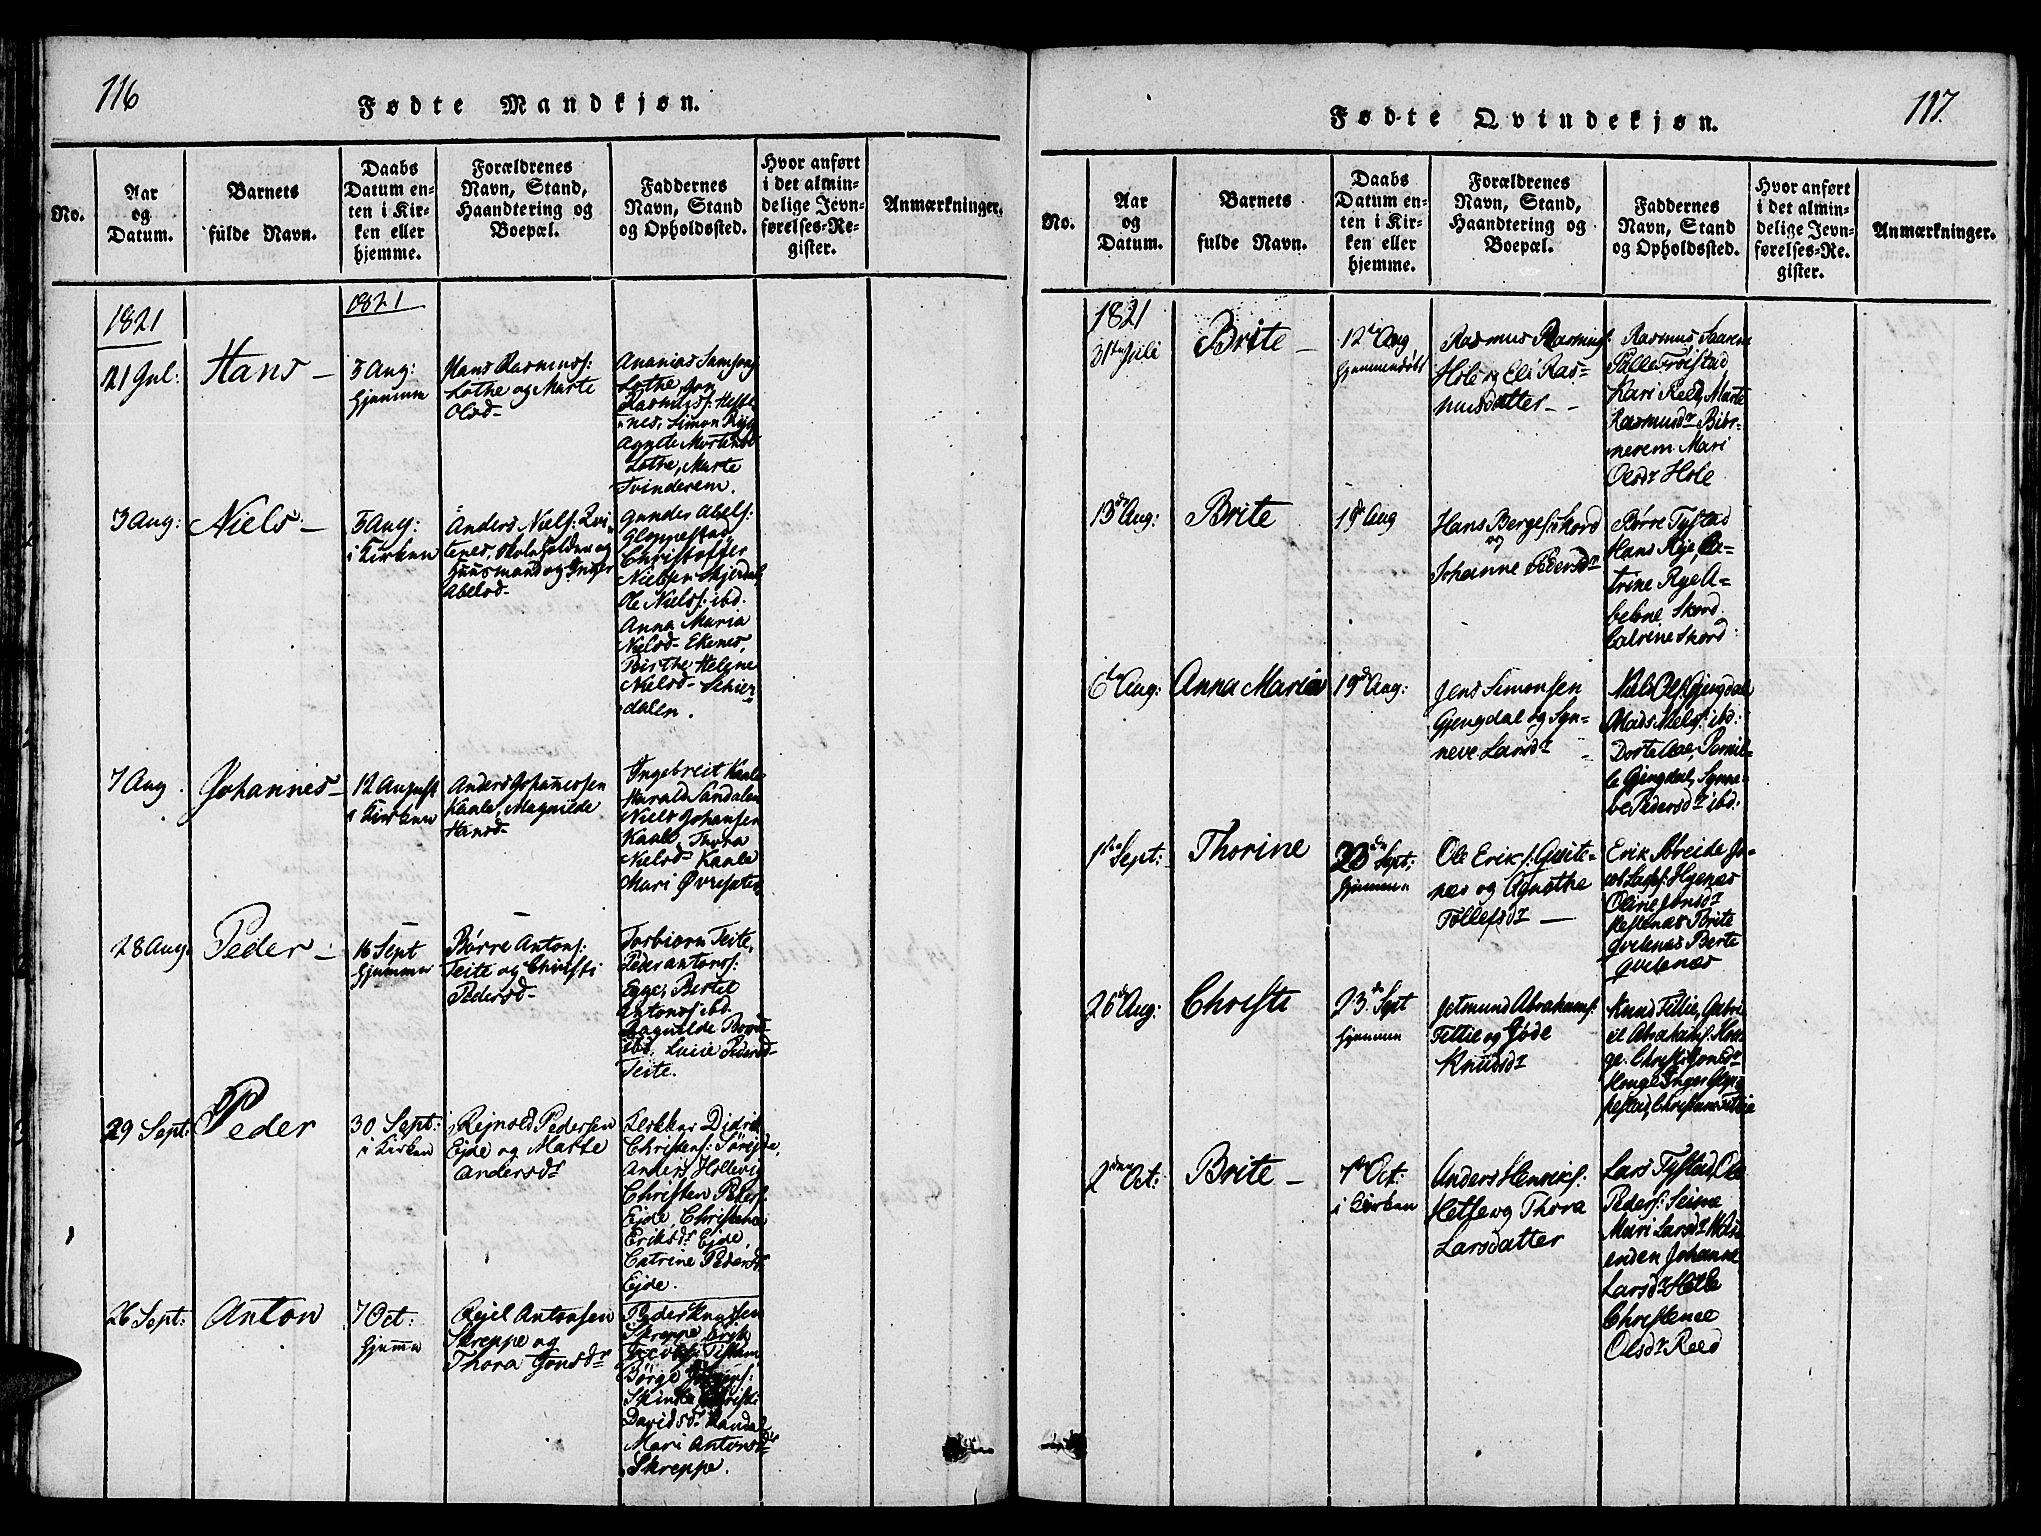 116
Fødte Mandkjøn.
No.
Aar
og
Datum.
Barnets
fulde Navn.
Daabs
Datum en-
ten i Kir-
ken eller
hjemme.
Forældrenes
Navn, Stand,
Haandtering og
Boepæl.
Faddernes
Navn, Stand
og Opholdssted.
Hvor anført
i det almin-
delige Jevn-
førelses-Re-
gister.
Anmærkninger.
1821
1821
21 Jul:
Hans
5 Aug:
hjemme
Hans Rasmuss:
Lothe og Marte
Olsd
Ananias Samsons
Lothe, Jon
Rasmuss: Heste
nes, Simon Ryg
Agnete Mortensd
Lothe, Marte
Tvinderem.
3 Aug:
Niels
5 Aug:
i Kirken
Anders Niels: Qvi
tenes, Skoleholder og
Huusmand og Inger
Abelsd
Gunder Abels:
Gloppestad
Christoffer
Nielsen Skjerdal
Ole Niels: ibd.
Anna Maria
Nielsd Ekenes,
Birthe Helene
Nielsd Schier
dalen.
7 Aug.
Johannes
12 August
i Kirken
Anders Johannessen
Kaale, Magnilde
Hansd
Ingebreit Kaale
Harald Sandalen
Niels Johansen
Kaale, Thora
Nielsd Kaale
Mari Øvresæter
28 Aug.
Peder
16 Sept
hjemme
Børre Antons:
Teite og Christi
Pedersd
Torbiørn Teite,
Peder Antons:
Egge, Bertel
Antons ibd.
Ragnilde
ibd. Lucie Pedersd
Teite.
29 Sept:
Peder
30 Sept:
i Kirken
Rejnold Pedersen
Ejde og Marte
Andersdr
Klokker Didrik
Christens:
Anders Hollevig
Christen Peders:
Ejde, Christence
Eriksdr Ejde,
Catrine Pedersdr
Ejde.
26 Sept:
Anton
7 Oct:
hjemme
Rejel Antonsen
Skreppe og
Thora Jonsdr
Peder Knudsen
Skreppe,
Jacobs:
Børge
Christi
Davidsdr Sandal
Mari Antonsdr
Skreppe.
117.
Fødte Qvindekjøn.
No.
Aar
og
Datum.
Barnets
fulde Navn.
Daabs
Datum en-
ten i Kir-
ken eller
hjemme.
Forældrenes
Navn, Stand,
Haandtering og
Boepæl.
Faddernes
Navn, Stand
og Opholdssted.
Hvor anført
i det almin-
delige Jevn-
førelses-Re-
gister.
Anmærkninger.
1821
31te Juli
Brite
12 Aug
hjemmedøbt
Rasmus Rasmus:
Hole og Eli Ras-
musdatter
Rasmus
Frøistad
Kari Reed, Marte
Rasmusdr Biør-
nerem Mari
Olsdr Hole
13de Aug:
Brite
19 Aug
Hans Berges: Skord
og
Johanne Pedersdr
Børre Tystad
Hans Rye, Ca-
trine Rye A-
belone Skord
Catrine Skord
6te Aug:
Anna Maria
19de Aug:
Jens Simonsen
Gjengdal og Syn-
neve Larsdr
Niels Ols: Gjengdal
Mads Niels: ibd:
Dorte Aae, Pernil-
le Gjengdal, Synne-
ve Pedersdr ibd:
1ste Sept:
Thorine
23de Sept:
hjemme
Ole Eriks: Qvite-
næs og Agnethe
Tollefsdr
Erik Breide Ja-
cob Hyenæs
Oline Jonsdr
Hestenæs Brite
Qvitenæs Berte
Qvitenæs
26de Aug:
Christi
23de Sept
hjemme
Jetmund Abrahams:
Fettie og Gjøde
Knudsdr
Knud Fettie, Gabri-
el Abrahams: Hau-
ge. Christi Jonsdr
Houge Inger Glop-
pestad, Christiane Fettie
2den Oct:
Brite
7de Oct:
i Kirken
Anders Henriks:
Hetle og Thora
Larsdatter
Lars Tystad, Ole
Peders: Seime
Mari Larsdr
enden Johanne
Larsdr Hetle
Christence
Olsdr Reed